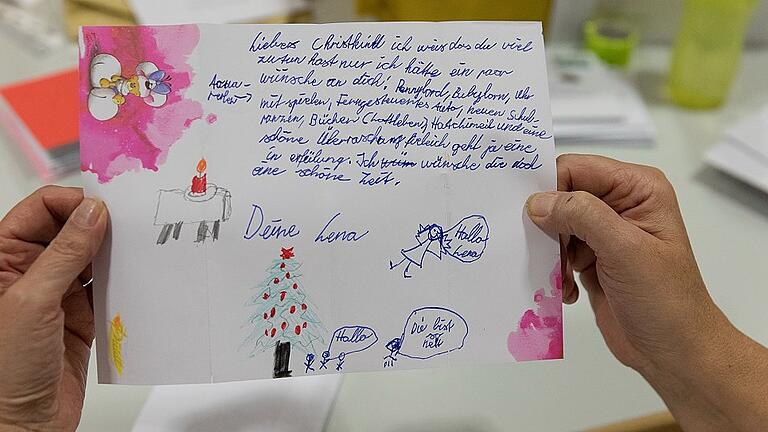 Liebes Christkindl ich weis das du viel
zu tun hast nur ich hätte ein paar
wünsche an dich! Ponnyford, Babyborn, Uhr
mit spielen, Ferngesteuertes Auto, neuen Schul-
ranzen, Bücher (Lottaleben) Hatschimeil und eine
schöne Überraschung fileich geht ja eine
in erfeilung. Ich wünsche dir noch
eine schöne Zeit.
Deine Lena
Hallo
Lena
Hallo
Die bist
nett